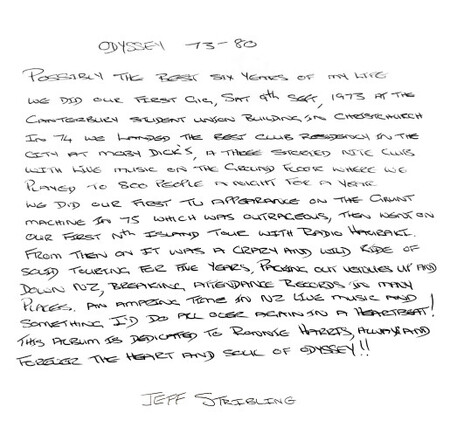 ODYSSEY 73-80
POSSIBLY THE BEST SIX YEARS OF MY LIFE
WE DID OUR FIRST GIG, SAT 9th SEPT, 1973 AT THE
CANTERBURY STUDENT UNION BUILDING IN CHRISTCHURCH
IN 74 WE LANDED THE BEST CLUB RESIDENCY IN THE
CITY AT MOBY DICK'S, A THREE STORIED NITE CLUB
WITH LIVE MUSIC ON THE GROUND FLOOR WHERE WE
PLAYED TO 800 PEOPLE A NIGHT FOR A YEAR
WE DID OUR FIRST TV APPEARANCE ON THE GRUNT
MACHINE IN 75 WHICH WAS OUTRAGEOUS, THEN WENT ON
OUR FIRST Nth ISLAND TOUR WITH RADIO HAURAKI.
FROM THEN ON IT WAS A CRAZY AND WILD RIDE OF
SOLID TOURING FOR FIVE YEARS, PACKING OUT VENUES UP AND
DOWN NZ, BREAKING ATTENDANCE RECORDS IN MANY
PLACES. AN AMAZING TIME IN NZ LIVE MUSIC AND
SOMETHING I'D DO ALL OVER AGAIN IN A HEARTBEAT!
THIS ALBUM IS DEDICATED TO RONNIE HARRIS, ALWAYS AND
FOREVER THE HEART AND SOUL OF ODYSSEY!!
JEFF STRIBLING